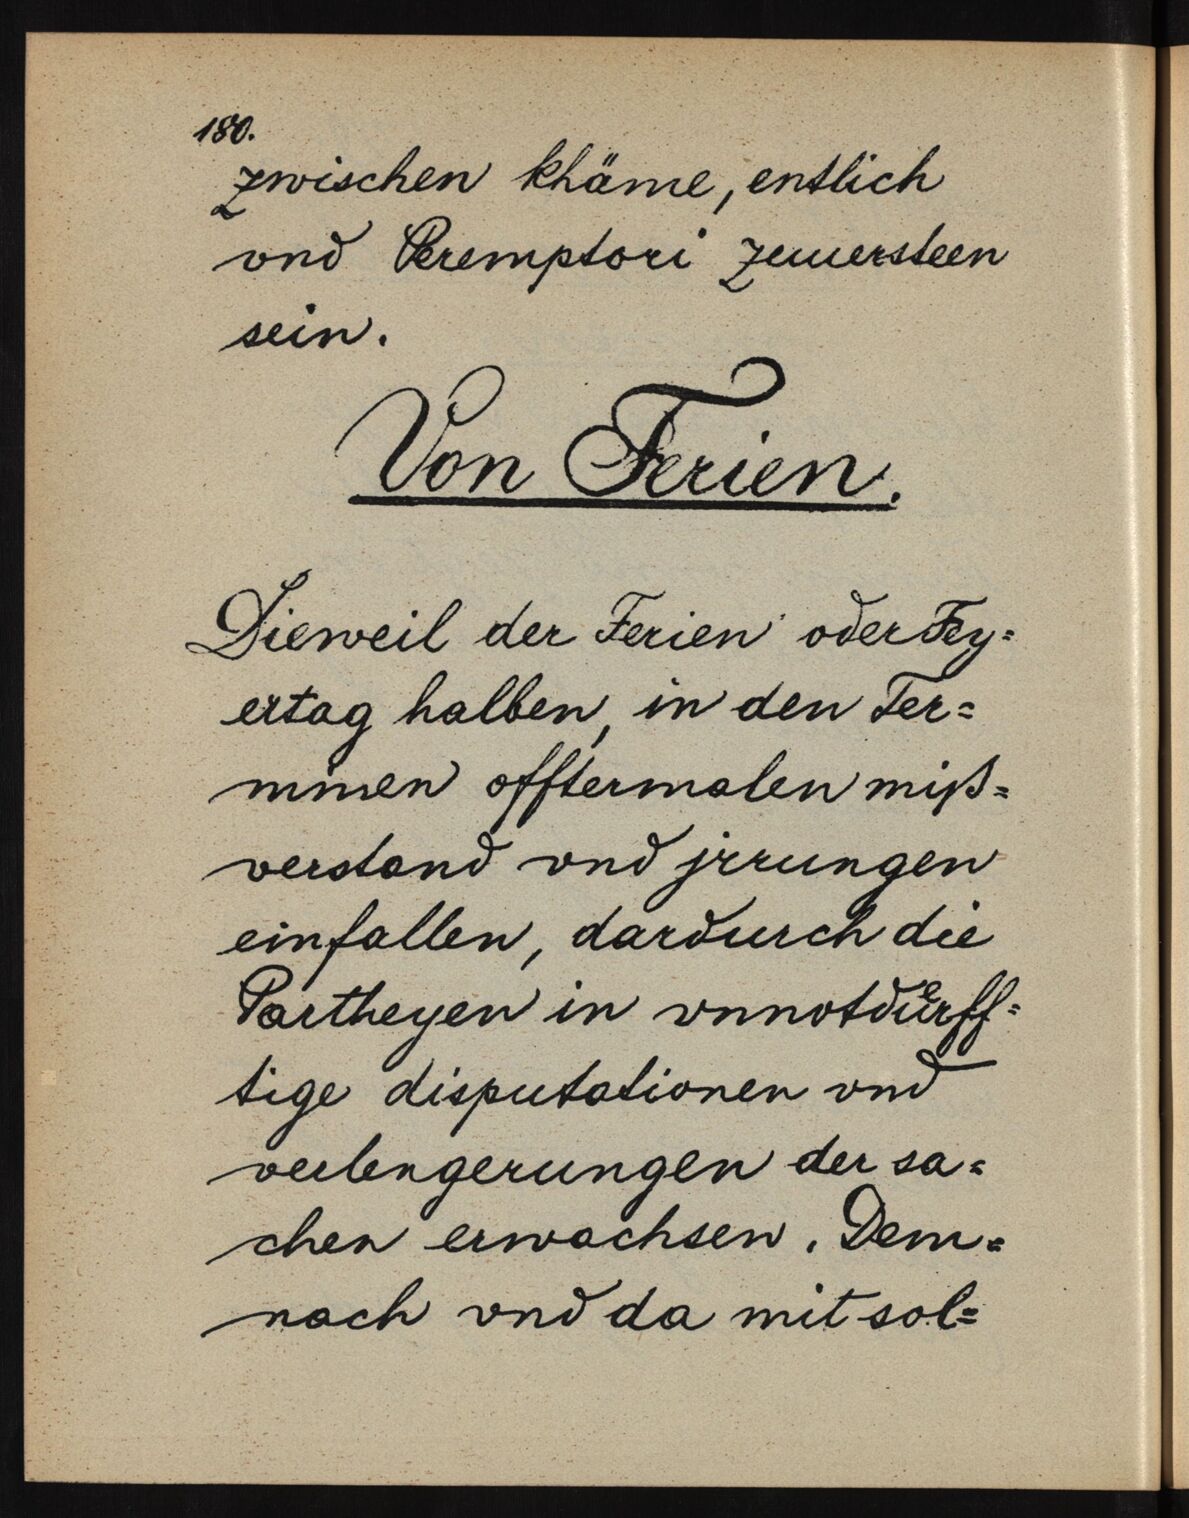 180.
zwischen khäme, entlich
vnd Peremptori zuuersteen
sein.
Von Ferien.
Dieweil der Ferien oder Fey=
ertag halben, in den Ter=
minen offtermalen miß=
verstand vnd jrrungen
einfallen, dardurch die
Partheyen in vnnotduͤrff=
tige disputationen vnd
verlengerungen der sa=
chen erwachsen. Dem=
nach vnd da mit sol=